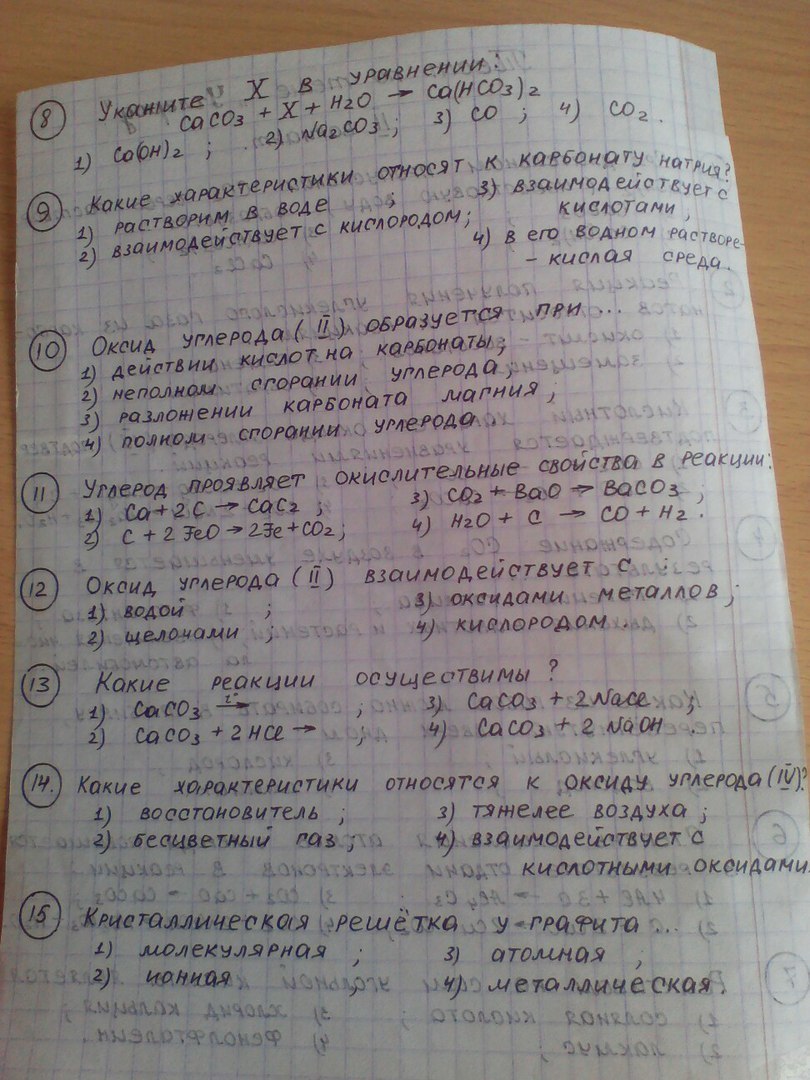 8 Укажите X в уравнении:
CaCO3 + X + H2O → Ca(HCO3)2
1) Ca(OH)2 ; 2) Na2CO3 ; 3) CO ; 4) CO2.
9 Какие характеристики относят к карбонату натрия?
1) растворим в воде ; 3) взаимодействует с
2) взаимодействует с кислородом; кислотами ;
4) в его водном растворе-
- кислая среда.
10 Оксид углерода (II) образуется при ...
1) действии кислот на карбонаты;
2) неполном сгорании углерода;
3) разложении карбоната магния ;
4) полном сгорании углерода
11 Углерод проявляет окислительные свойства в реакции:
1) Ca + 2C → CaC2 ; 3) CO2 + BaO → BaCO3 ;
2) C + 2FeO → 2Fe + CO2; 4) H2O + C → CO + H2 .
12 Оксид углерода (II) взаимодействует с ...
1) водой ; 3) оксидами металлов ;
2) щелочами ; 4) кислородом .
13 Какие реакции осуществимы ?
1) CaCO3 t°→ ; 3) CaCO3 + 2NaCl ;
2) CaCO3 + 2HCl → ; 4) CaCO3 + 2 NaOH .
14. Какие характеристики относятся к оксиду углерода (IV)?
1) восстановитель ; 3) тяжелее воздуха ;
2) бесцветный газ ; 4) взаимодействует с
кислотными оксидами.
15 Кристаллическая решётка у графита ...
1) молекулярная ; 3) атомная ;
2) ионная ; 4) металлическая.